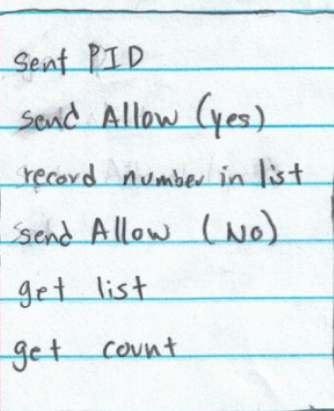 sent PID
send Allow (yes)
record number in list
send Allow (No)
get list
get count